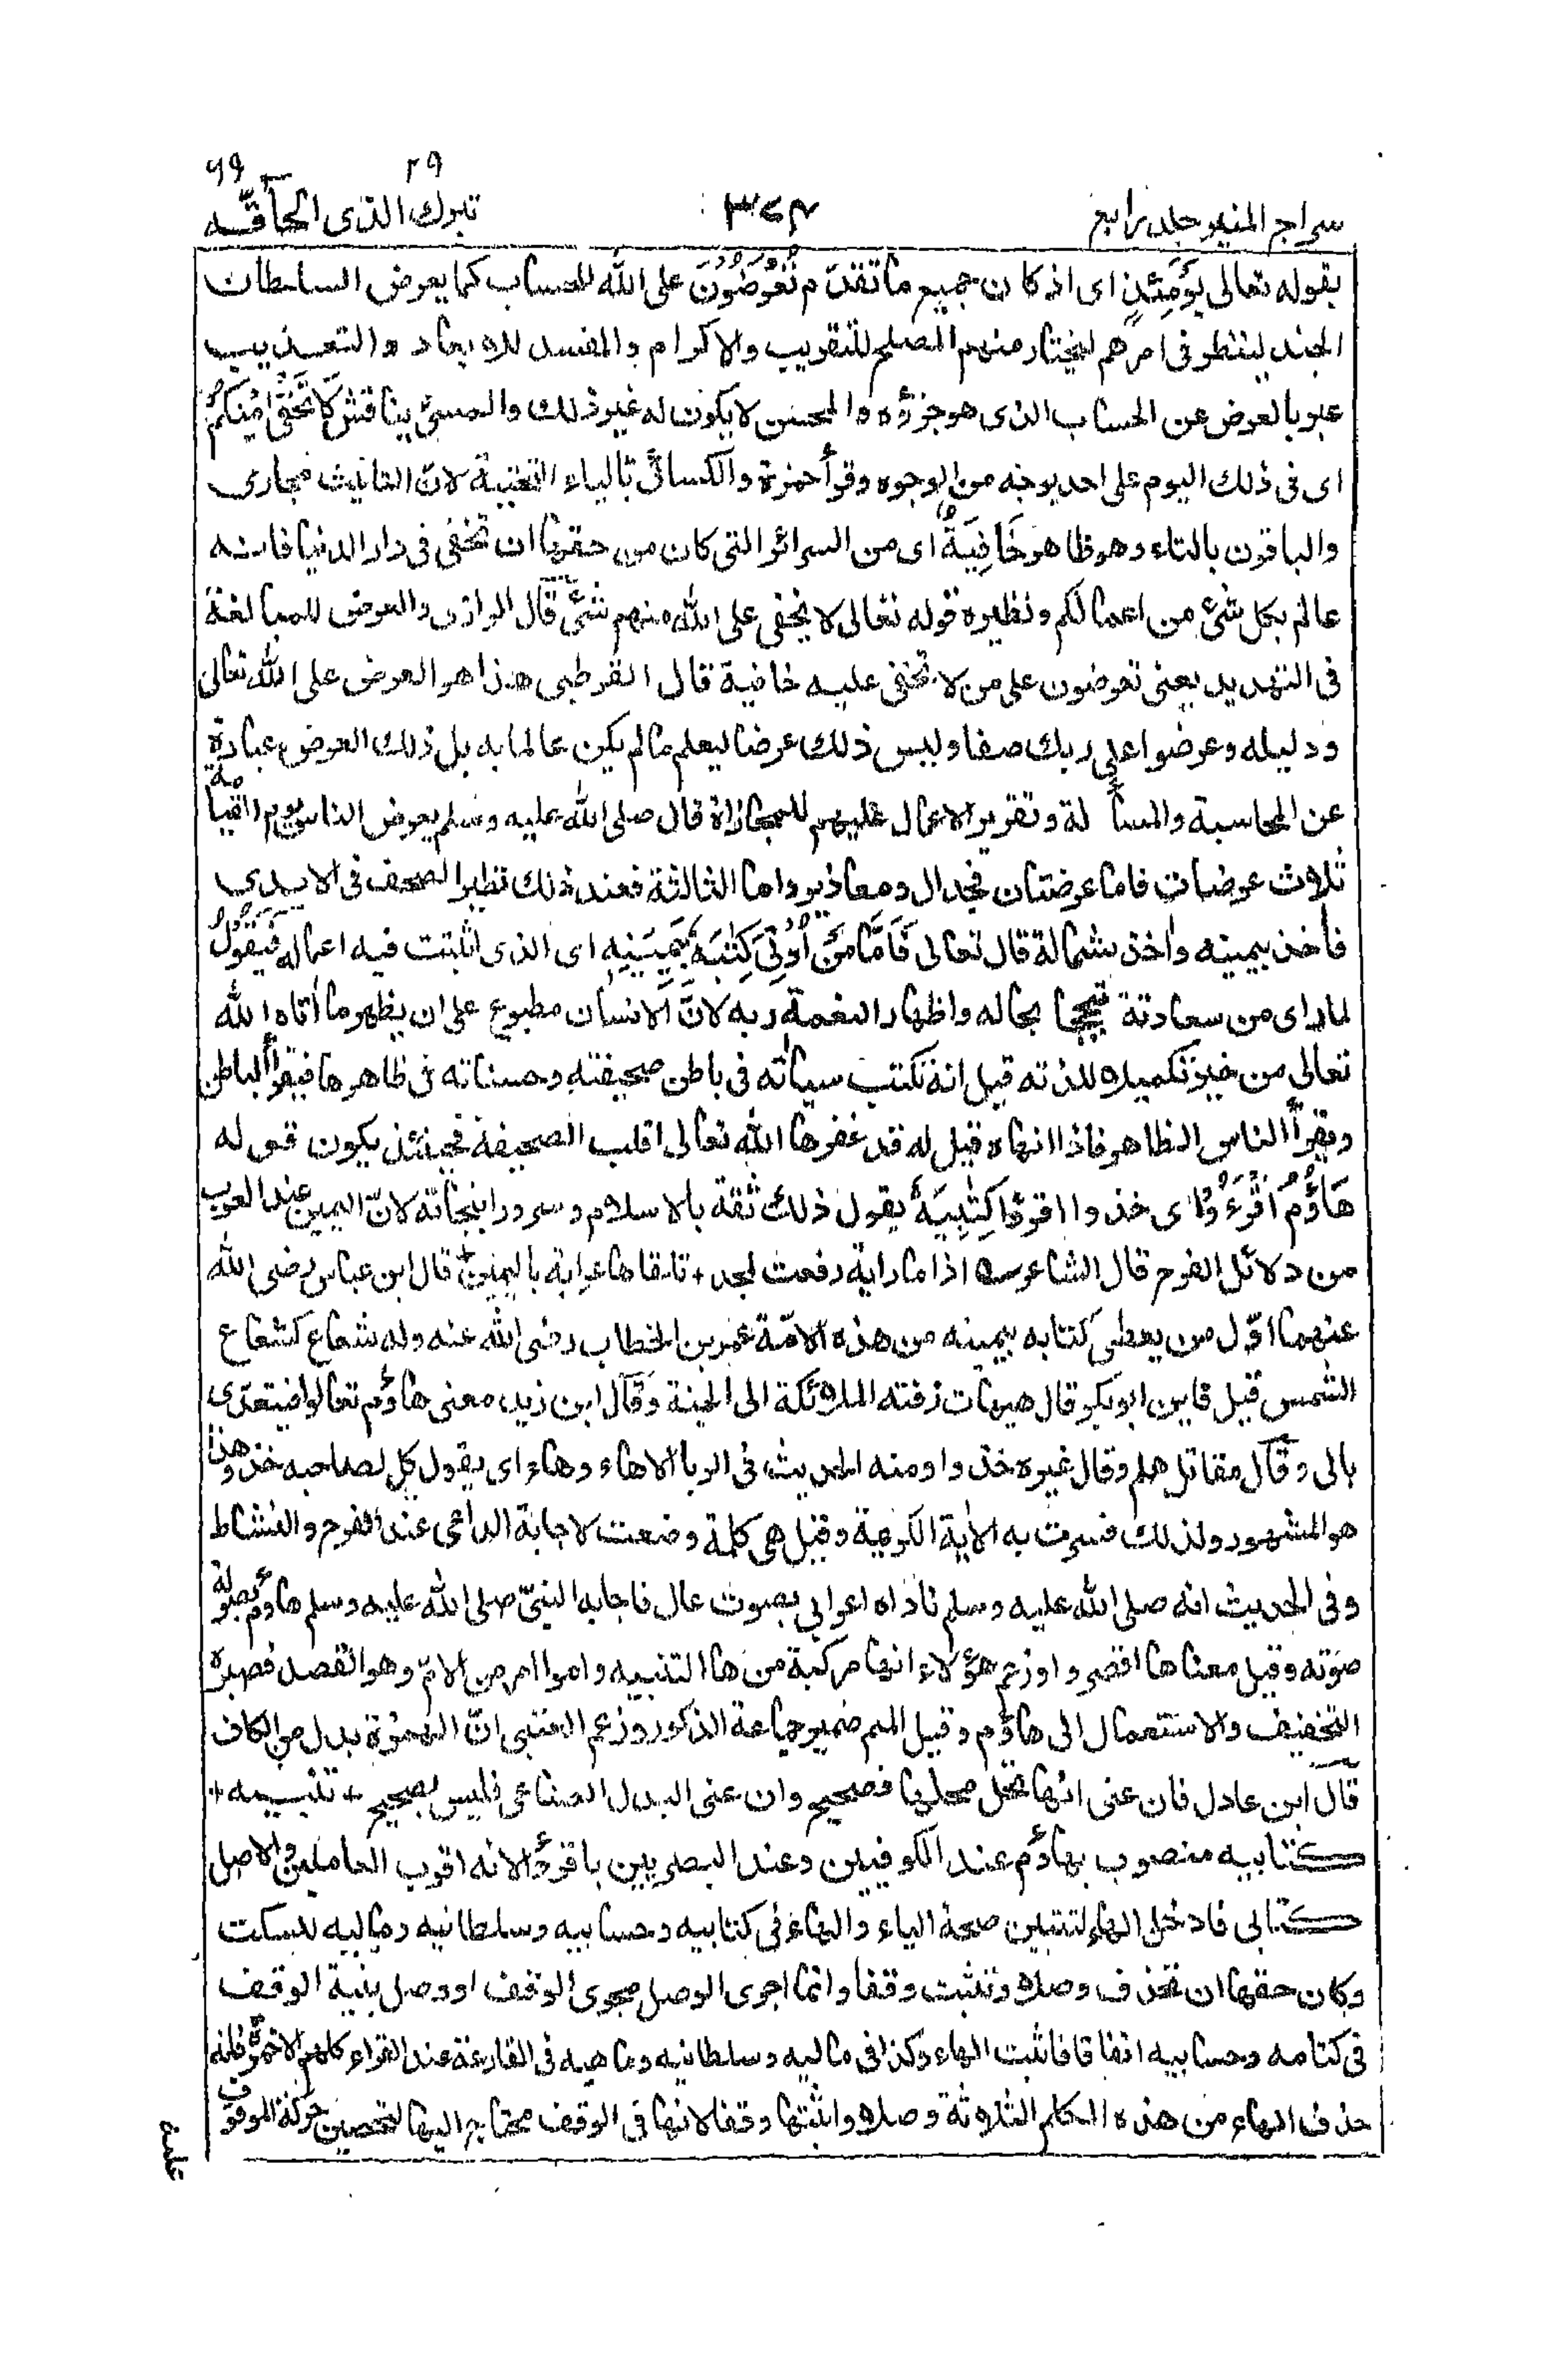 ٢٩ ٦٩
سراج المنير جلد رابع ٣٧٤ تبرك الذى الحآقّه
بقوله تعالى يَوْمَئِذٍ اى اذ كان جميع ما تقدّم تُعْرَضُوْنَ على الله للحساب كما يعرض السلطان
الجند لينظر فى امرهم ليختار منهم المصلح للتقريب والاكرام والمفسد للابعاد والتعذيب
عبر بالعرض عن الحساب الذى هو جزؤه والمحسن لا يكون له غير ذلك والمسىٔ يناقش لَا تَخْفٰى مِنْكُمْ
اى فى ذلك اليوم على احد بوجه من الوجوه وقرأ حمزة والكسائىّ بالياء التحتية لانّ التانيث مجازى
والباقون بالتاء وهو ظاهر خَافِيَةٌ اى من السرائر التى كان من حقها ان تخفى فى دار الدنيا فانه
عالم بكل شىٔ من اعمالكم ونظيره قوله تعالى لا يخفى على الله منهم شىٔ قال الرازى والعرض للمبالغة
فى التهديد يعنى تعرضون على من لا تخفى عليه خافية قال القرطبى هذا هو العرض على الله تعالى
ودليله وعرضوا على ربك صفا وليس ذلك عرضا ليعلم ما لم يكن عالما به بل ذلك العرض عبارة
عن المحاسبة والمسألة وتقرير الاعمال عليهم للمجازاة قال صلى الله عليه وسلم يعرض الناس يوم القيامة
ثلاث عرضات فاما عرضتان فجدال ومعاذير واما الثالثة فعند ذلك تطير الصحف فى الايدى
فآخذ بيمينه وآخذ بشماله قال تعالى فَاَمَّا مَنْ اُوْتِىَ كِتٰبَهٗ بِيَمِيْنِهٖ اى الذى اثبتت فيه اعماله فَيَقُوْلُ
لما راى من سعادتة تبجحا بحاله واظهارا لنعمة ربه لانّ الانسان مطبوع على ان يظهر ما أتاه الله
تعالى من خير تكميلا للذته قيل انه تكتب سيأته فى باطن صحيفته وحسناته فى ظاهرها فيقرأ الباطن
ويقرأ الناس الظاهر فاذا انهاه قيل له قد غفرها الله تعالى اقلب الصحيفة فحينئذ يكون قوله
هَآؤُمُ اقْرَءُوْا اى خذوا اقرؤا كِتٰبِيَهْ يقول ذلك ثقة بالاسلام وسرورا بنجاته لانّ اليمين عند العرب
من دلائل الفرح قال الشاعر ؎ اذا ما راية رفعت لمجد + تلقاها عرابة باليمين + قال ابن عباس رضى الله
عنهما اوّل من يعطى كتابه بيمينه من هذه الامّة عمر بن الخطاب رضى الله عنه وله شعاع كشعاع
الشمس قيل فاين ابو بكر قال هيهات زفته الملائكة الى الجنة وقال ابن زيد معنى هاؤم تعالوا فيتعدّى
بالى وقال مقاتل هلم وقال غيره خذوا ومنه الحديث فى الربا الا هاء وهاء اى يقول كل لصاحبه خذ وهذا
هو المشهور ولذلك فسرت به الآية الكريمة وقيل هى كلمة وضعت لاجابة الداعى عند الفرح والنشاط
وفى الحديث انه صلى الله عليه وسلم ناداه اعرابى بصوت عال فاجابه النبىّ صلى الله عليه وسلم هاؤم بصولة
صوته وقيل معناها اقصروا وزعم هؤلاء انها مركبة من ها التنبيه واموا امر من الامّ وهو القصد فصيره
التخفيف والاستعمال الى هاؤم وقيل الميم ضمير جماعة الذكور وزعم القتبى انّ الهمزة بدل من الكاف
قال ابن عادل فان عنى انها تحل محلها فصحيح وان عنى البدل الصناعى فليس بصحيح + تنبيه +
كتابيه منصوب بهاؤم عند الكوفيين وعند البصريين باقرؤا لانه اقرب العاملين والاصل
كتابى فادخل الهاء لتتبين صحة الياء والهاء فى كتابيه وحسابيه وسلطانيه وماليه للسكت
وكان حقها ان تحذف وصلا وتثبت وقفا وانما اجرى الوصل مجرى الوقف او وصل بنية الوقف
فى كتابيه وحسابيه اتفاقا فاثبت الهاء وكذا فى ماليه وسلطانيه وماهيه فى القارعة عند القراء كلهم الا حمزة فانه
حذف الهاء من هذه الكلم الثلاثة وصلا واثبتها وقفا لانها فى الوقف محتاج اليها لتحصين حركة الموقوف
عليه